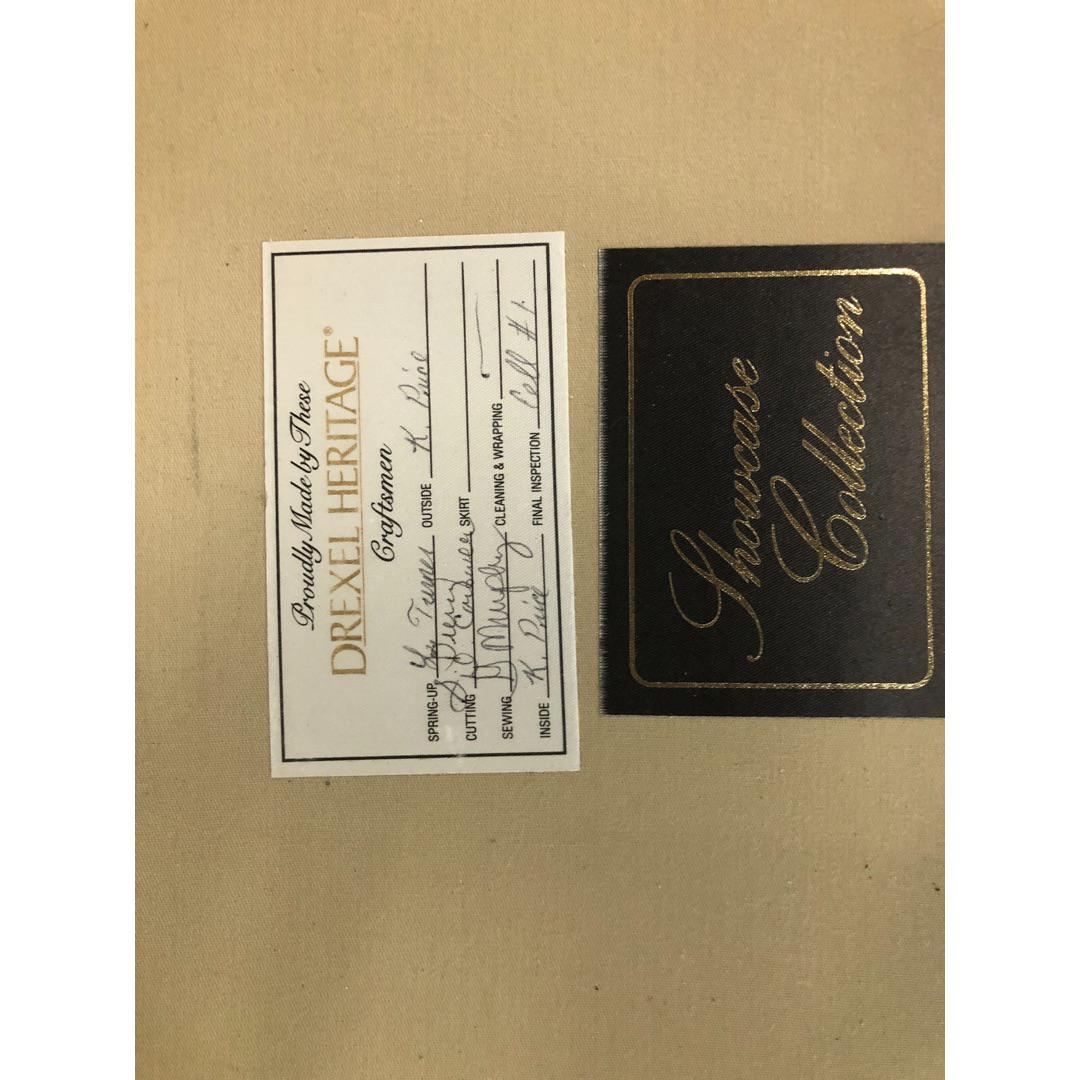 Proudly Made by These
DREXEL HERITAGE®
Craftsmen
SPRING-UP Turner OUTSIDE K. Price
S. Perry
CUTTING SKIRT
SEWING D Murphy CLEANING & WRAPPING
INSIDE K. Price FINAL INSPECTION Cell #1
Showcase
Collection